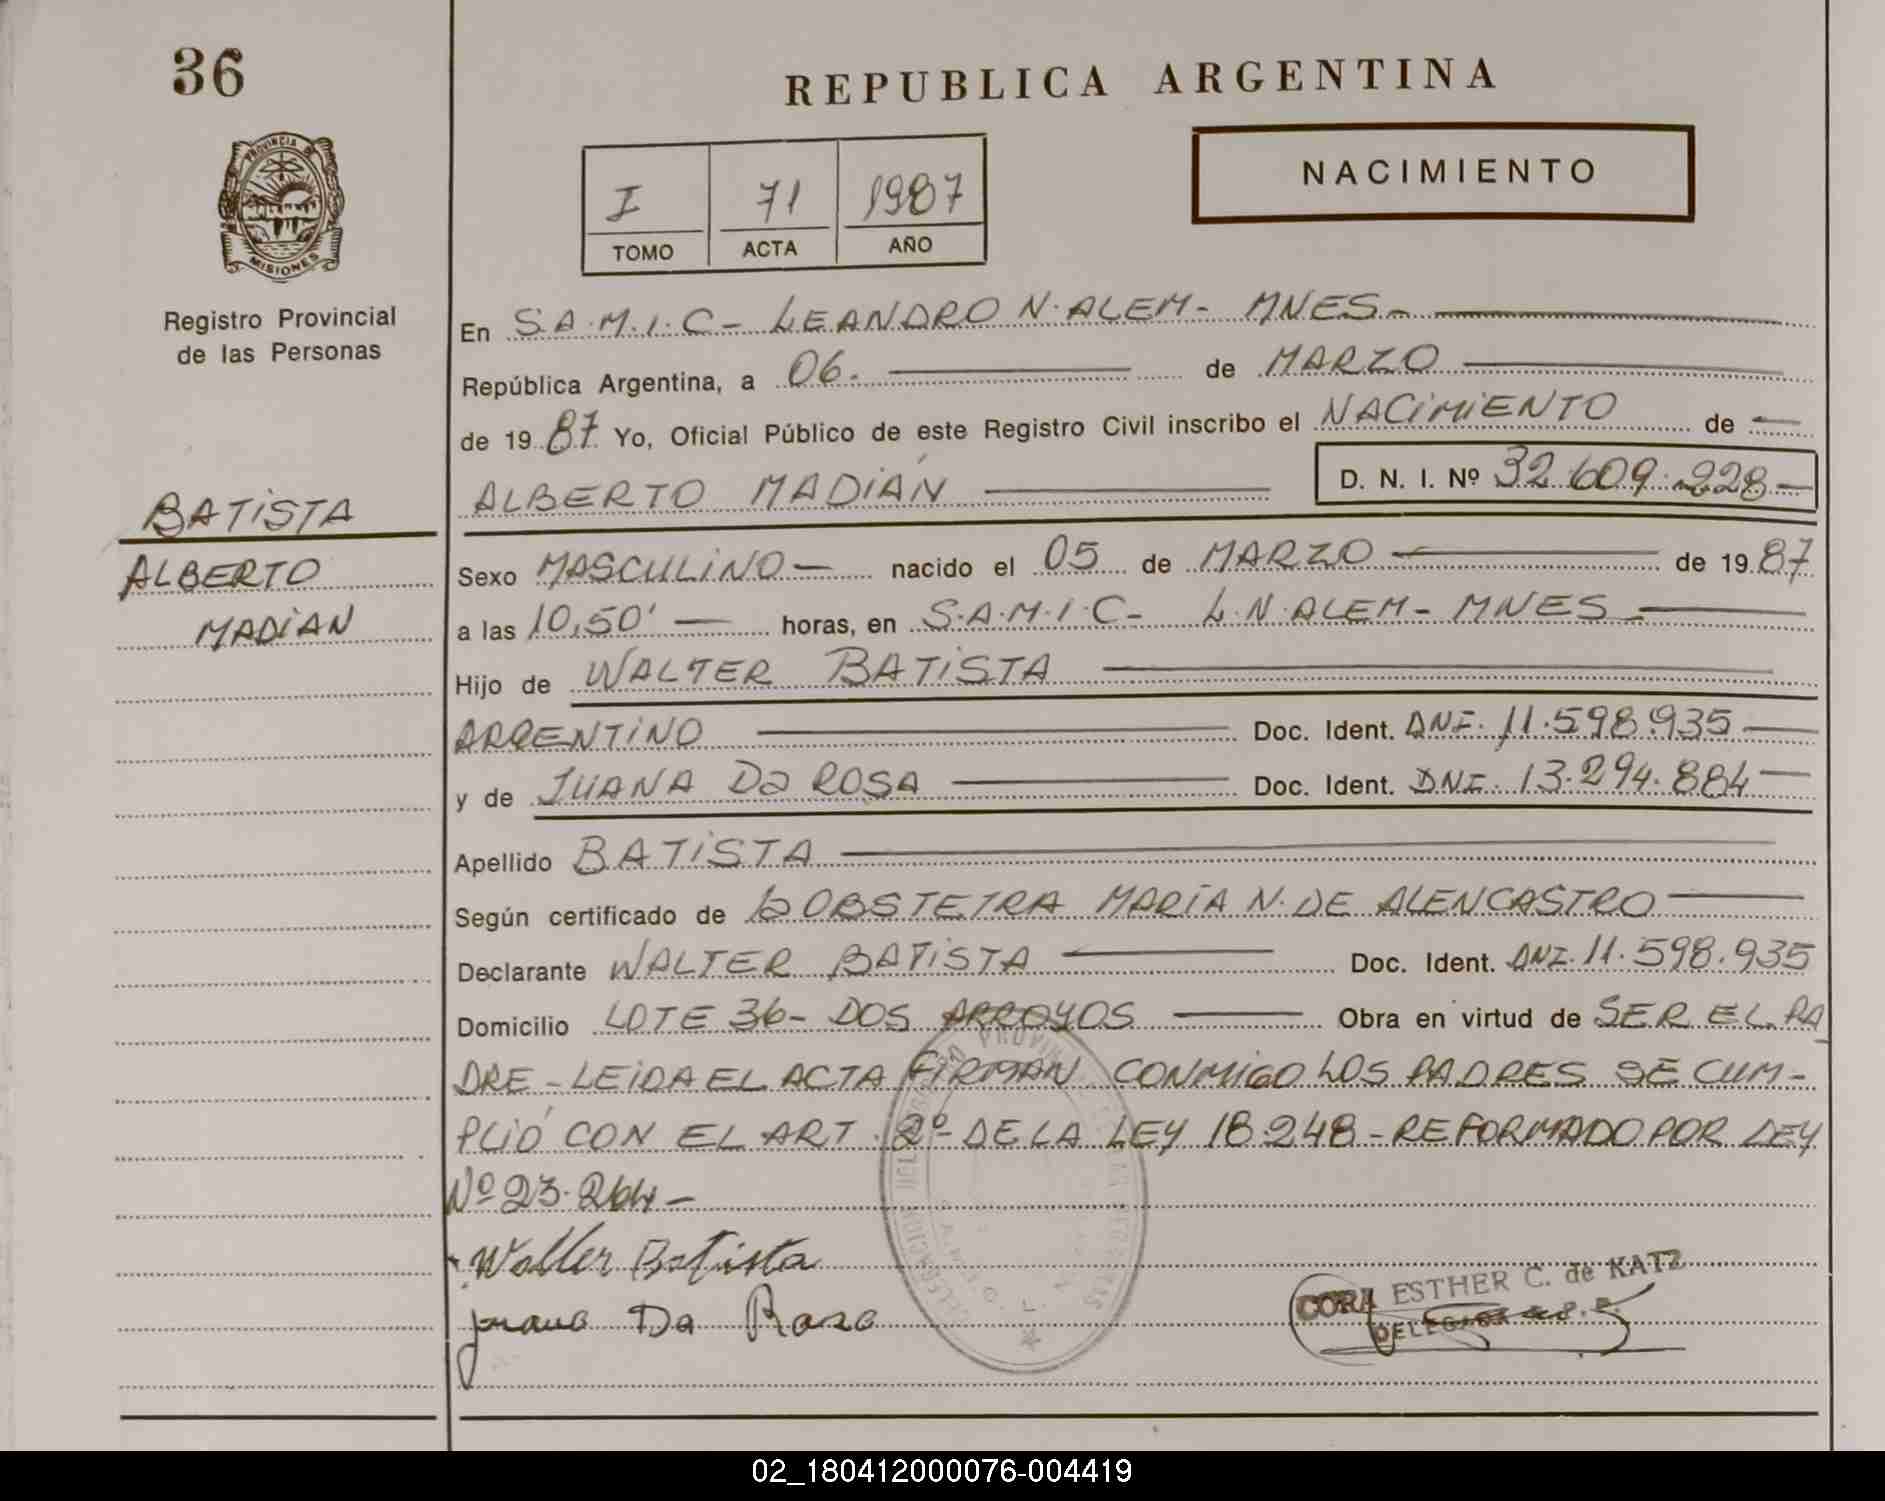 36
REPUBLICA ARGENTINA
PROVINCIA DE
MISIONES
Registro Provincial
de las Personas
I 71 1987
TOMO ACTA AÑO
NACIMIENTO
En S.A.M.I.C- LEANDRO N. ALEM- MNES.-
República Argentina, a 06. de MARZO
de 1987 Yo, Oficial Público de este Registro Civil inscribo el NACIMIENTO de
ALBERTO MADIÁN D. N. I. Nº 32.609.228-
BATISTA
ALBERTO
MADIAN
Sexo MASCULINO- nacido el 05 de MARZO de 1987
a las 10,50' horas, en S.A.M.I.C- L.N.ALEM- MNES-
Hijo de WALTER BATISTA
ARGENTINO Doc. Ident. DNI. 11.598.935
y de JUANA Da ROSA Doc. Ident. DNI. 13.294.884
Apellido BATISTA
Según certificado de LA OBSTETRA MARÍA N. DE ALENCASTRO
Declarante WALTER BATISTA Doc. Ident. DNI. 11.598.935
Domicilio LOTE 36- DOS ARROYOS Obra en virtud de SER EL PA
DRE - LEIDA EL ACTA FIRMAN CONMIGO LOS PADRES SE CUM-
PLIÓ CON EL ART. 2º DE LA LEY 18.248 - REFORMADO POR LEY
Nº 23.264-
Walter Batista
Juana Da Rosa
CORA ESTHER C. de KATZ
DELEGADA
02_180412000076-004419